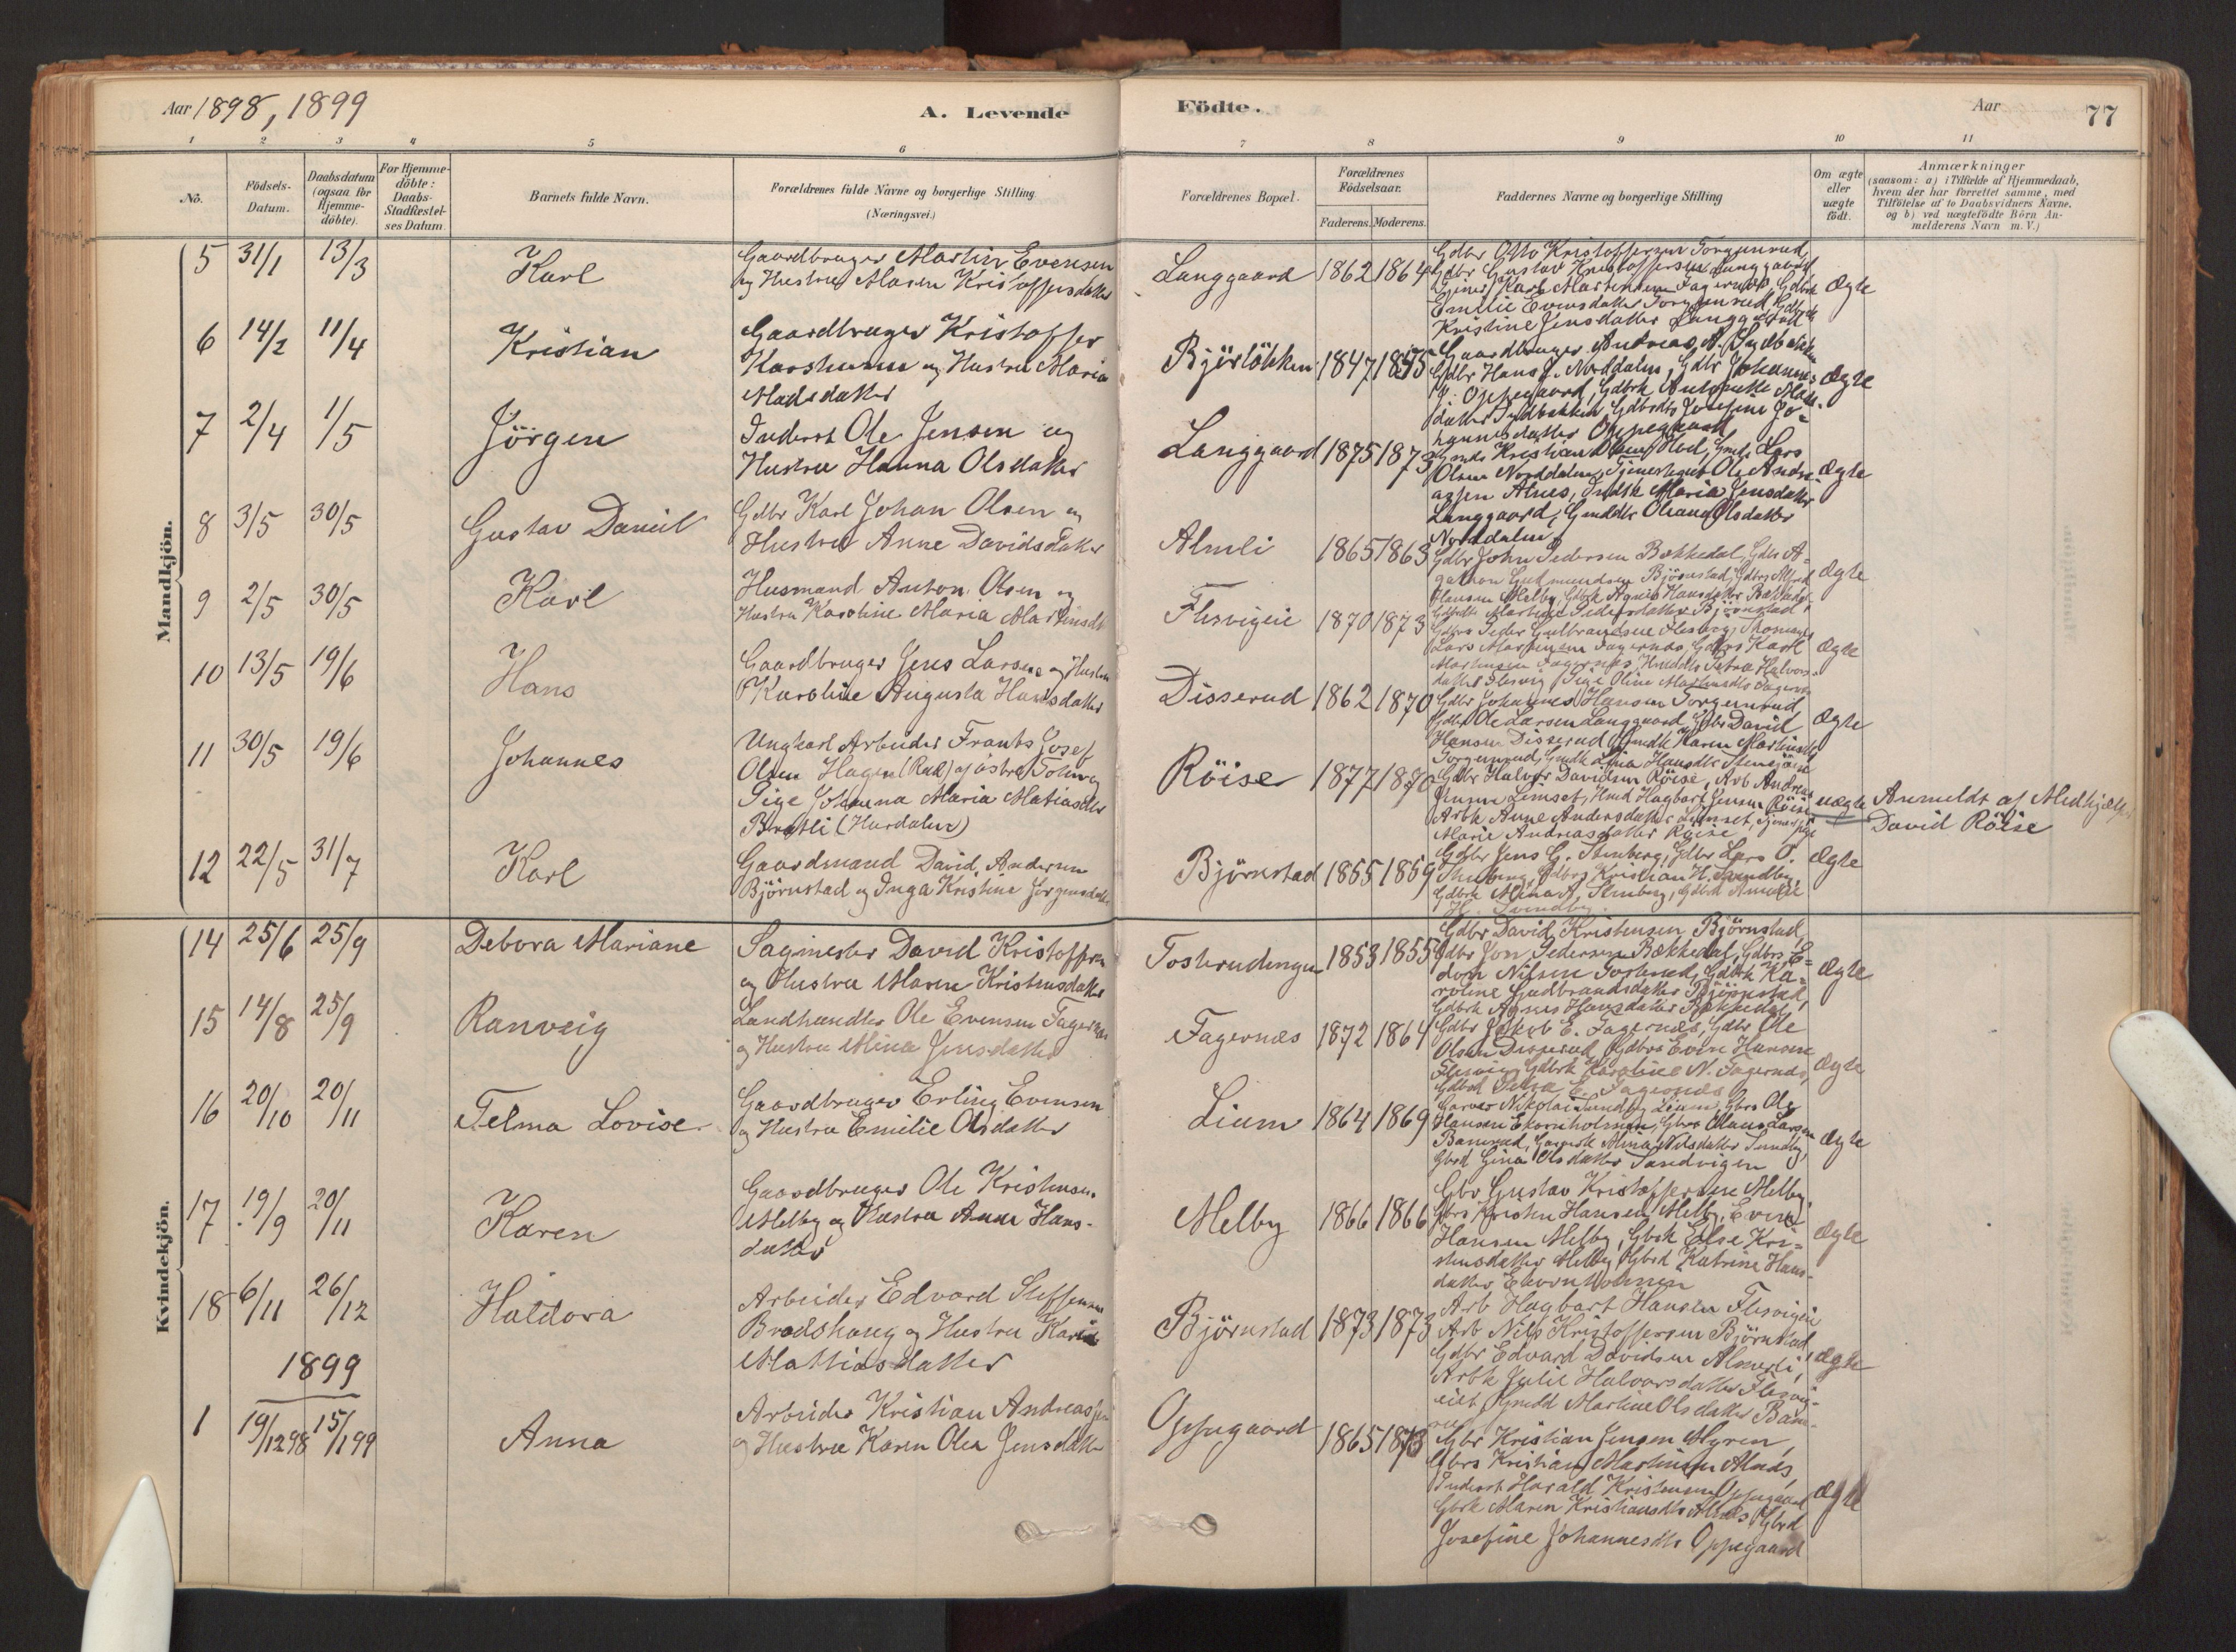 Aar 1898, 1899
A. Levende
Födte.
Aar
77
1 2 3 4 5 6 7 8 9 10 11
No.
Födsels-
Datum.
Daabsdatum
(ogsaa for
Hjemme-
döbte).
For Hjemme-
döbte:
Daabs-
Stadfæstel-
ses Datum.
Barnets fulde Navn.
Forældrenes fulde Navne og borgerlige Stilling
(Næringsvei.)
Forældrenes Bopæl.
Forældrenes
Födselsaar.
Faderens. Moderens.
Faddernes Navne og borgerlige Stilling
Om ægte
eller
uægte
födt.
Anmærkninger
(saasom: a) i Tilfælde af Hjemmedaab,
hvem der har forrettet samme, med
Tilföielse af to Daabsvidners Navne.
og b) ved uægtefödte Börn An-
melderens Navn m. V.)
Mandkjön.
5 31/1 13/3 Karl
Gaardbruger Martin Evensen
og Hustru Maren Kristoffersdatter
Langgaard 1862 1864
Gdbr Otto Kristoffersen Torgunrud,
Gdbr Gustav Kristoffersen Langgaard
Karl Martinsen Fagernæs, Gdbrk
Emilie Evensdatter Torgunrud,
Kristine Jensdatter Langgaard
Ægte
6 14/2 11/4 Kristian
Gaardbruger Kristoffer
Karshusne og Hustru Maria
Madsdatter
Björlökken 1847 1855
Gaardbruger Andreas A.
Gdbr Hans J. Norddalen, Gdbr Johannes
J. Oppegaard, Gdbrk Antonette
datter Gdbrdtr Josefine Jo-
hannesdatter Oppegaard
Ægte
7 2/4 1/5 Jörgen
Inderst Ole Jensen og
Hustru Hanna Olsdatter
Langgaard 1875 1873
Kristian Olsen Lars
Olsen Norddalen, Ole Andre-
assen Alnes, Indstk Maria Jensdatter
Langgaard, Olsdatter
Norddalen
Ægte
8 3/5 30/5 Gustav Daniel
Gdbr Karl Johan Olsen og
Hustru Anne Davidsdatter
Almli 1865 1863
Gdbr John Pedersen Bækkedal, Gdbr A-
Gudmundsen Björnstad, Gdbrs Alfred
Hansen Melby, Gdbrk Agnes Hansdatter
Martine Pedersdatter Björnstad
Ægte
9 2/5 30/5 Karl
Husmand Anton Olsen og
Hustru Karoline Maria Martinsdt
Flesvigeie 1870 1873
Gdbrs Peder Gulbrandsen Flesvig,
Lars Martinsen Fagernæs, Gdbrs Karl
Martinsen Fagernæs, Petra Halvors-
datter Flesvig, Pige Oline Martinsdtr Fagernæs
Ægte
10 13/5 19/6 Hans
Gaardbruger Jens Larsen og Hustru
Karoline Augusta Hansdatter
Disserud 1862 1870
Gdbr Johannes Hansen Torgunrud,
Gdbr Ole Larsen Langgaard, Gdbr David
Hansen Disserud, Karen Martinsdtr
Torgunrud, Lina Hansdtr
Ægte
11 30/5 19/6 Johannes
Ungkarl Arbeider Frants Josef
Olsen Hagen (Rud) af östre Toten og
Pige Johanna Maria Matiasdtr
Bratli (Hurdalen)
Röise 1877 1870
Gdbr Halvor Davidsen Röise, Arb Andreas
Jensen Limset, Hagbart Jensen Röise
Arbk Anne Andersdatter Limset,
Marie Andreasdatter Röise
uægte
Anmeldt af Medhjælper
David Röise
12 22/5 31/7 Karl
Gaardmand David Andersen
Björnstad og Inga Kristine Jörgensdatter
Björnstad 1855 1859
Gdbr Jens G. Stenberg, Gdbr Lars O.
Stenberg, Gdbrs Kristian H. Sundby,
Gdbrk Mina A. Stenberg, Gdbrd Amalie
H. Sundby.
Ægte
Kvindekjön.
14 25/6 25/9 Debora Mariane
Sagmester David Kristoffersen
og Hustru Maren Kristensdatter
Tosterudengen 1853 1855
Gdbr David Kristensen Björnstad,
Gdbr Jon Pedersen Bækkedal, Gdbrs E-
Nilsen Tosterud, Gdbrk Ka-
roline Gudbrandsdatter Björnstad,
Gdbrk Agnes Hansdatter Bækkedal
Ægte
15 14/8 25/9 Ranveig
Landhandler Ole Evensen Fagernæs
og Hustru Mina Jensdatter
Fagernæs 1872 1864
Gdbr Jakob E. Fagernæs, Gdbr Ole
Olsen Disserud, Gdbrs Even Hansen
Flesvig, Gdbrk Karoline N. Fagernæs,
Gdbrd Petra E. Fagernæs
Ægte
16 20/10 20/11 Telma Lovise
Gaardbruger Erling Evensen
og Hustru Emilie Olsdatter
Lium 1864 1869
Garver Nikolai Sundby Lium, Gbrs Ole
Hansen Ekornholmen, Gbrs Olaus Larsen
Banerud, Garverk Alma Nilsdatter Sundby,
Gbrd Gina Olsdatter Sandvigen
Ægte
17 19/9 20/11 Karen
Gaardbruger Ole Kristensen
Melby og Hustru Anne Hans-
datter
Melby 1866 1866
Gbr Gustav Kristoffersen Melby,
Gbrs Kristen Hansen Melby, Even
Hansen Melby, Gbrk Else Kri-
stensdatter Melby, Gbrd Katrine Hans-
datter Ekornholmen
Ægte
18 6/11 26/12 Haldora
Arbeider Edvard Steffensen
Brodshaug og Hustru Karin
Mattiasdatter
Björnstad 1873 1873
Arb Hagbart Hansen Flesvigeie
Arb Nils Kristoffersen Björnstad,
Gdbr Edvard Davidsen Almerli,
Arbk Julie Halvorsdatter Flesvig-
eiet, Gmdd Martine Olsdatter Bane-
rud
ægte
1899
1 19/12 98 15/1 99 Anna
Arbeider Kristian Andreassen
og Hustru Karen Olea Jensdatter
Oppegaard 1865 1873
Gbr Kristian Jensen Myren,
Gbrs Kristian Martinsen Alnæs,
Inderst Harald Kristensen Oppegaard
Gbrk Maren Kristiansdtr Alnæs, Gbrd
Josefine Johannesdtr Oppegaard
ægte